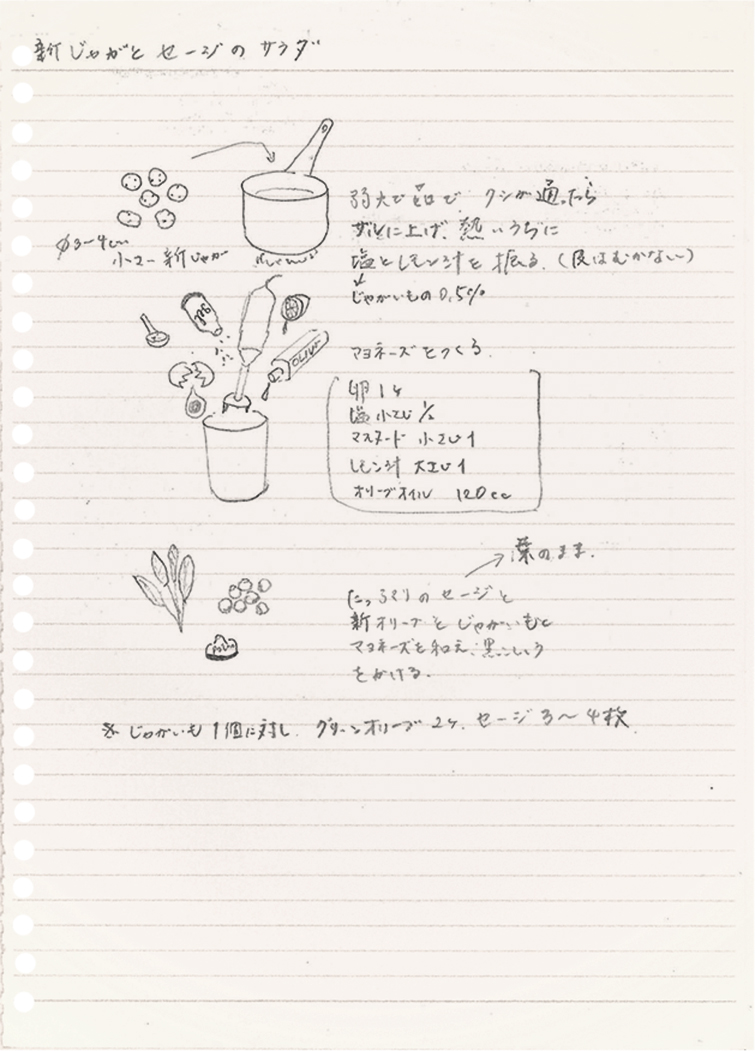 新じゃがとセージのサラダ
弱火で茹で クシが通ったら
ザルに上げ、熱いうちに
塩とレモン汁を振る。(皮はむかない)
じゃがいもの0.5%
φ3〜4cm
小さい新じゃが
マヨネーズをつくる。
卵 1ヶ
塩 小さじ 1/2
マスタード 小さじ1
レモン汁 大さじ1
オリーブオイル 120cc
OLIVE
葉のまま.
たっぷりのセージと
新オリーブとじゃがいもと
マヨネーズを和え、黒こしょう
をかける。
※じゃがいも1個に対し、グリーンオリーブ2ヶ、セージ3〜4枚